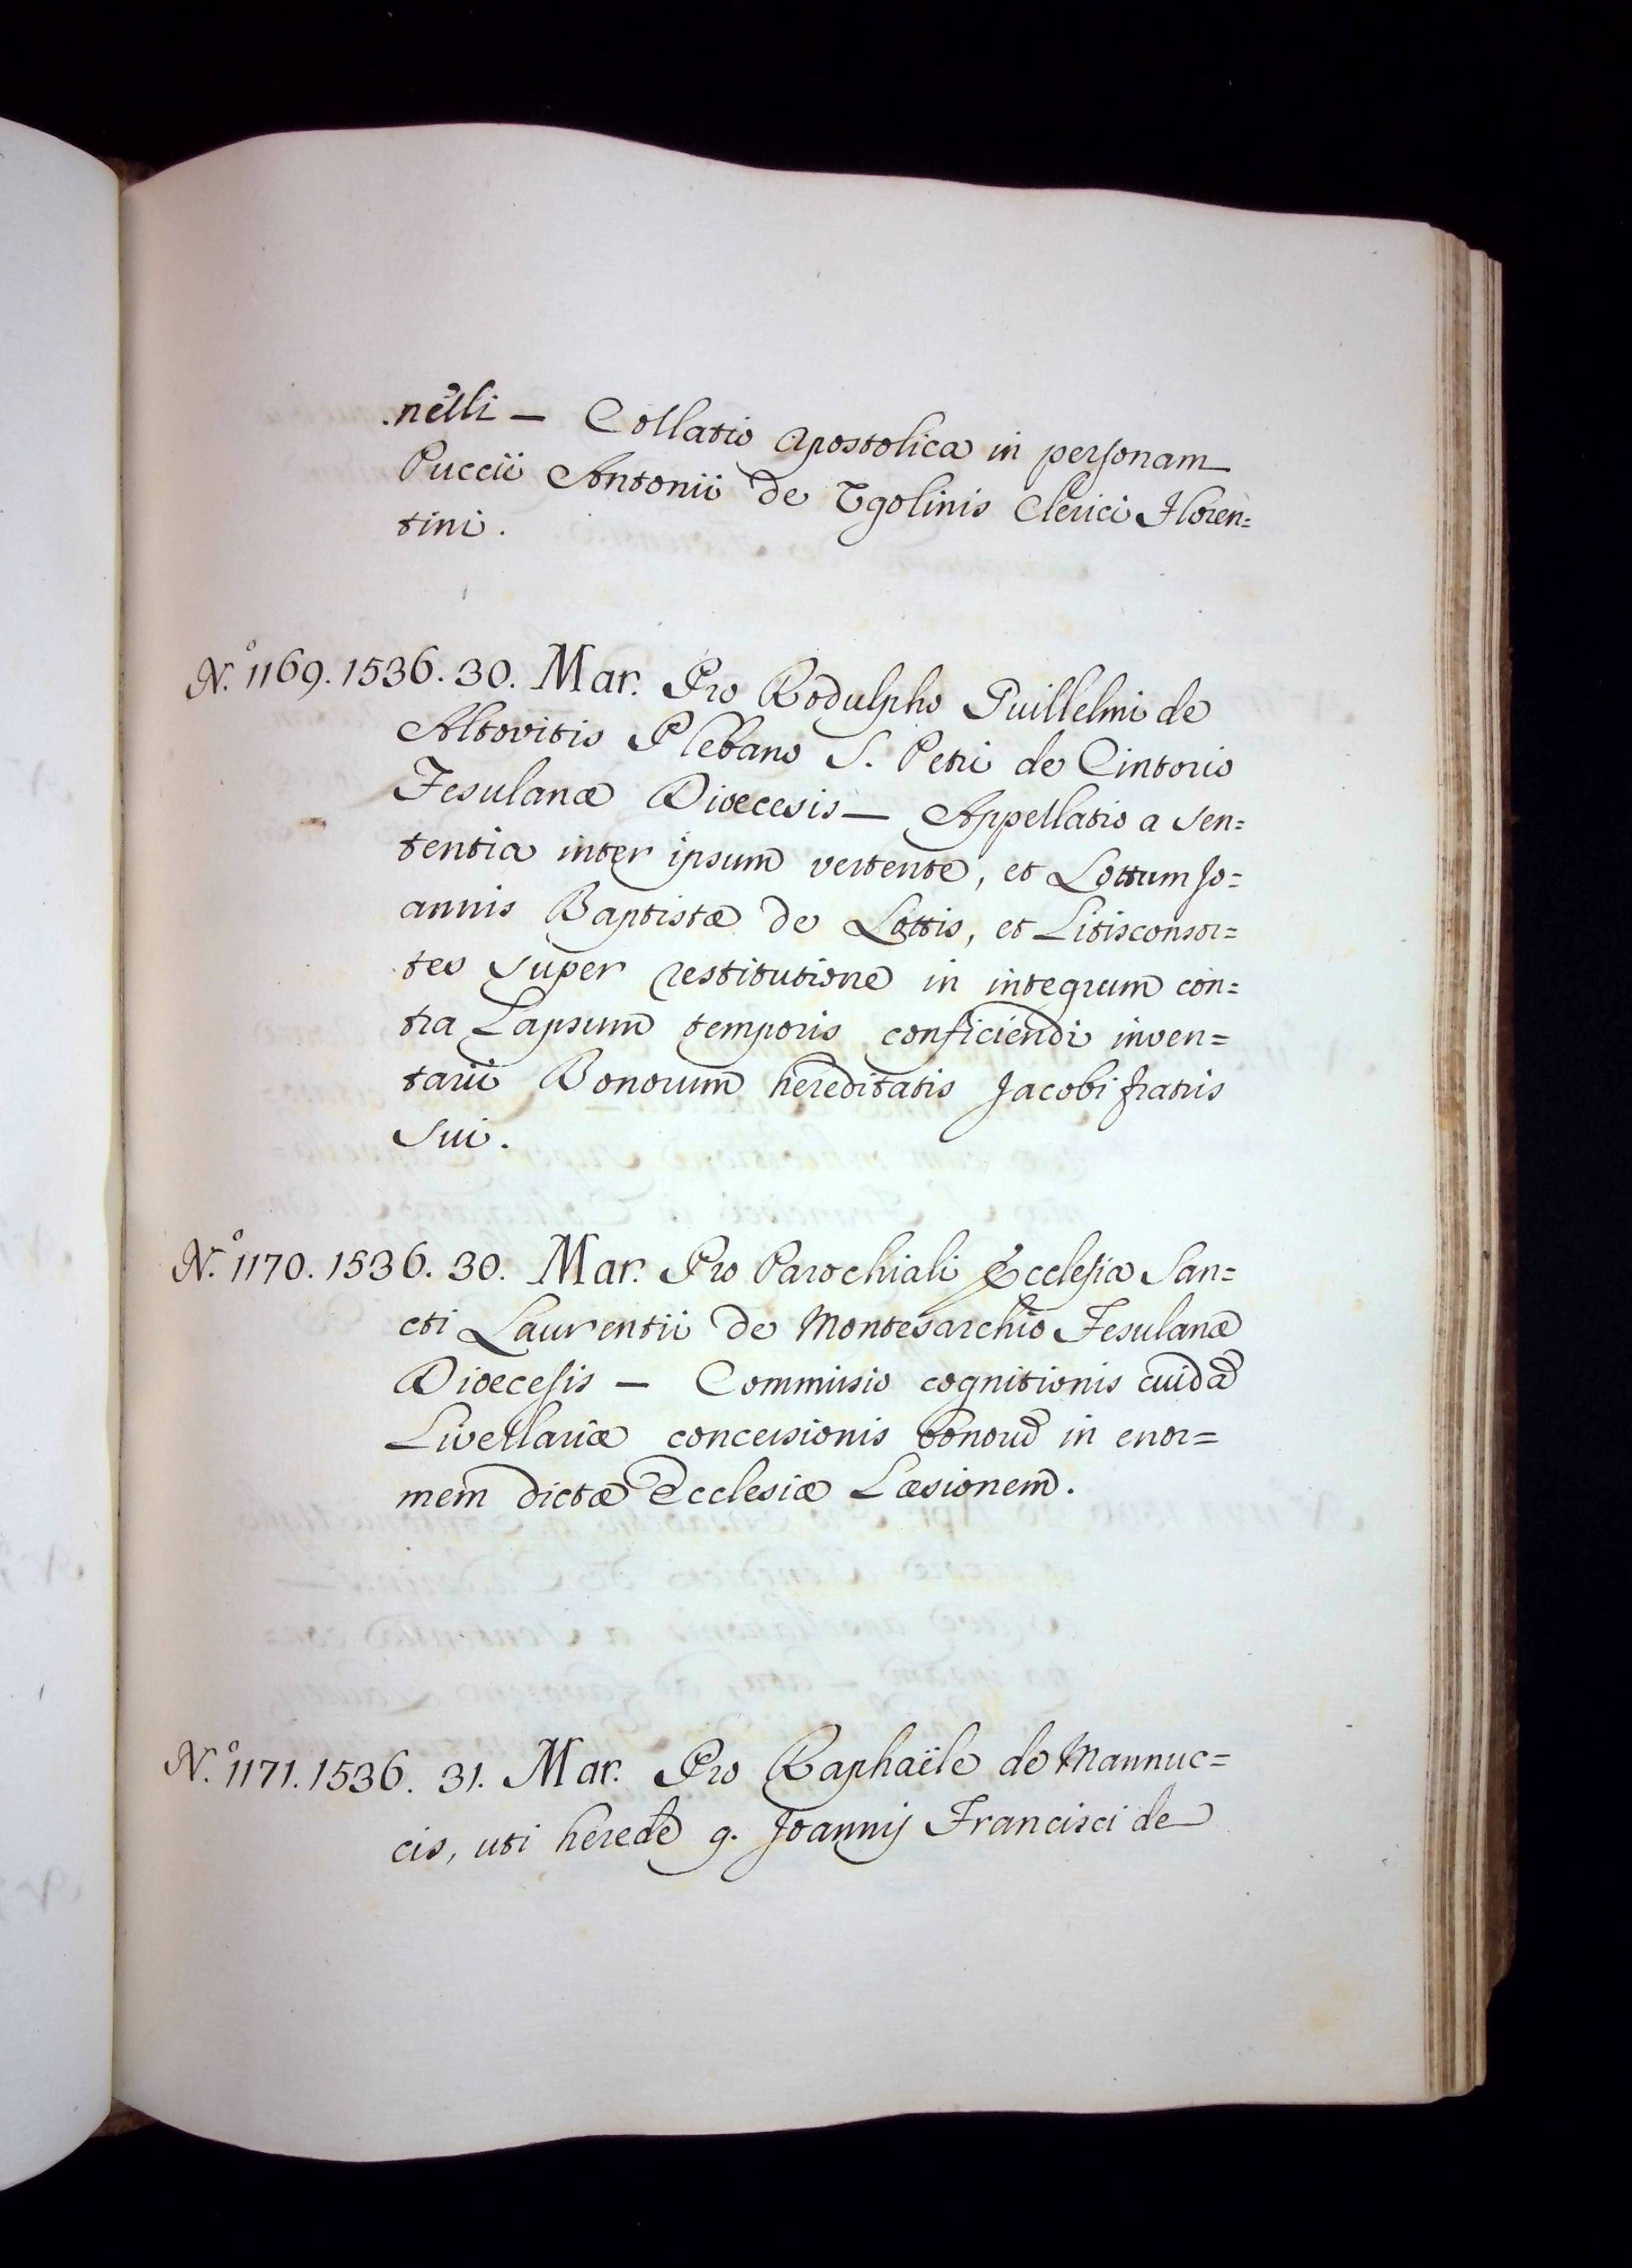 nelli — Collatio Apostolica in personam
Puccii Antonii de Ugolinis Clerici Floren=
tini.
N.º 1169. 1536. 30. Mar. Pro Rodulpho Guillelmi de
Altovitis Plebano S. Petri de Cintorio
Fesulanæ Diœcesis — Appellatio a Sen=
tentia inter ipsum vertente, et Lottum Jo=
annis Baptistæ de Lottis, et Litisconsor=
tes super restitutione in integrum con=
tra Lapsum temporis conficiendi inven=
tarii Bonorum hereditatis Jacobi fratris
sui.
N.º 1170. 1536. 30. Mar. Pro Parochiali Ecclesia San=
cti Laurentii de Montesarchio Fesulanæ
Diœcesis — Commisio cognitionis cuidã
Livellariæ concesionis bonorũ in enor=
mem dictæ Ecclesiæ Læsionem.
N.º 1171. 1536. 31. Mar. Pro Raphaële de Mannuc=
cis, uti herede q. Joannis Francisci de